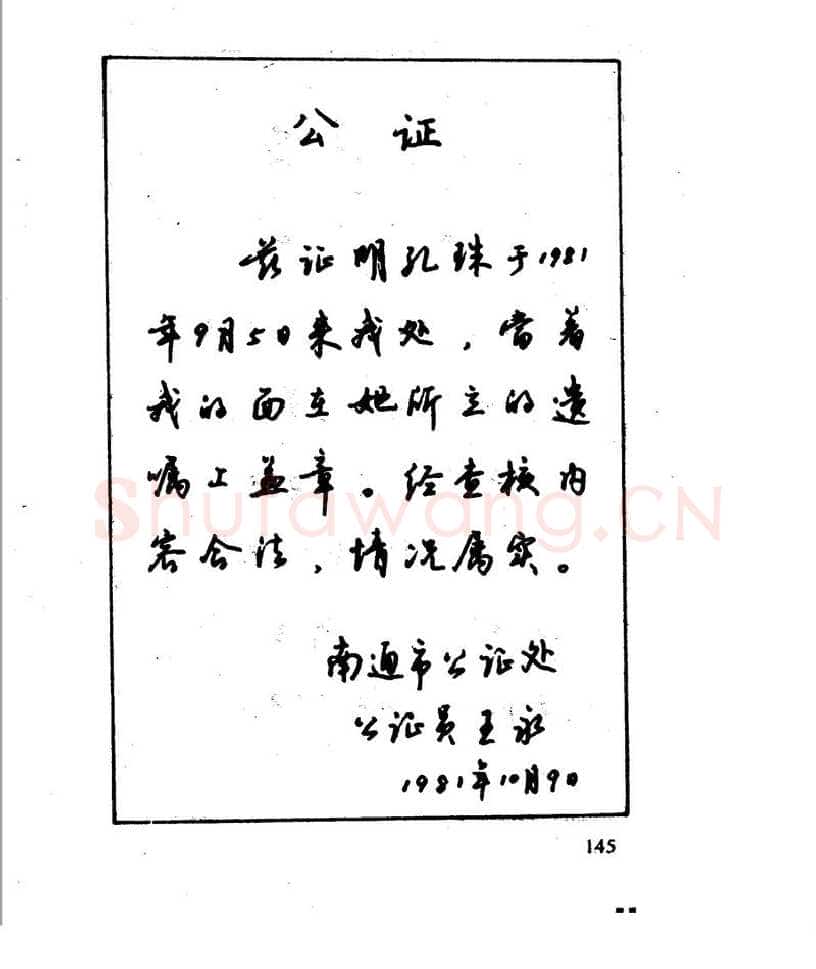 公 证
兹证明孔珠于1981
年9月5日来我处，当着
我的面在她所立的遗
嘱上盖章。经查核内
容合法，情况属实。
南通市公证处
公证员王永
1981年10月9日
145
Shufawang.CN